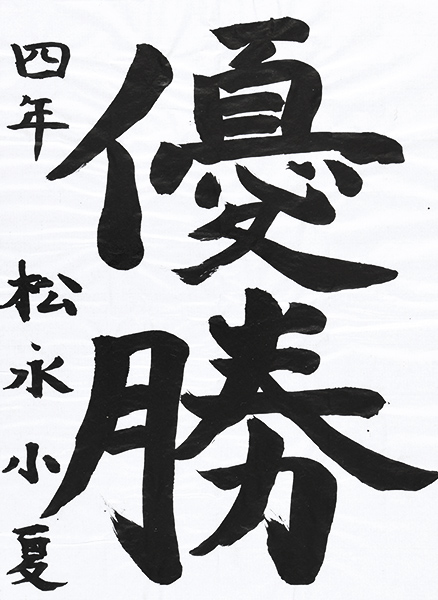 優勝
四年 松永小夏